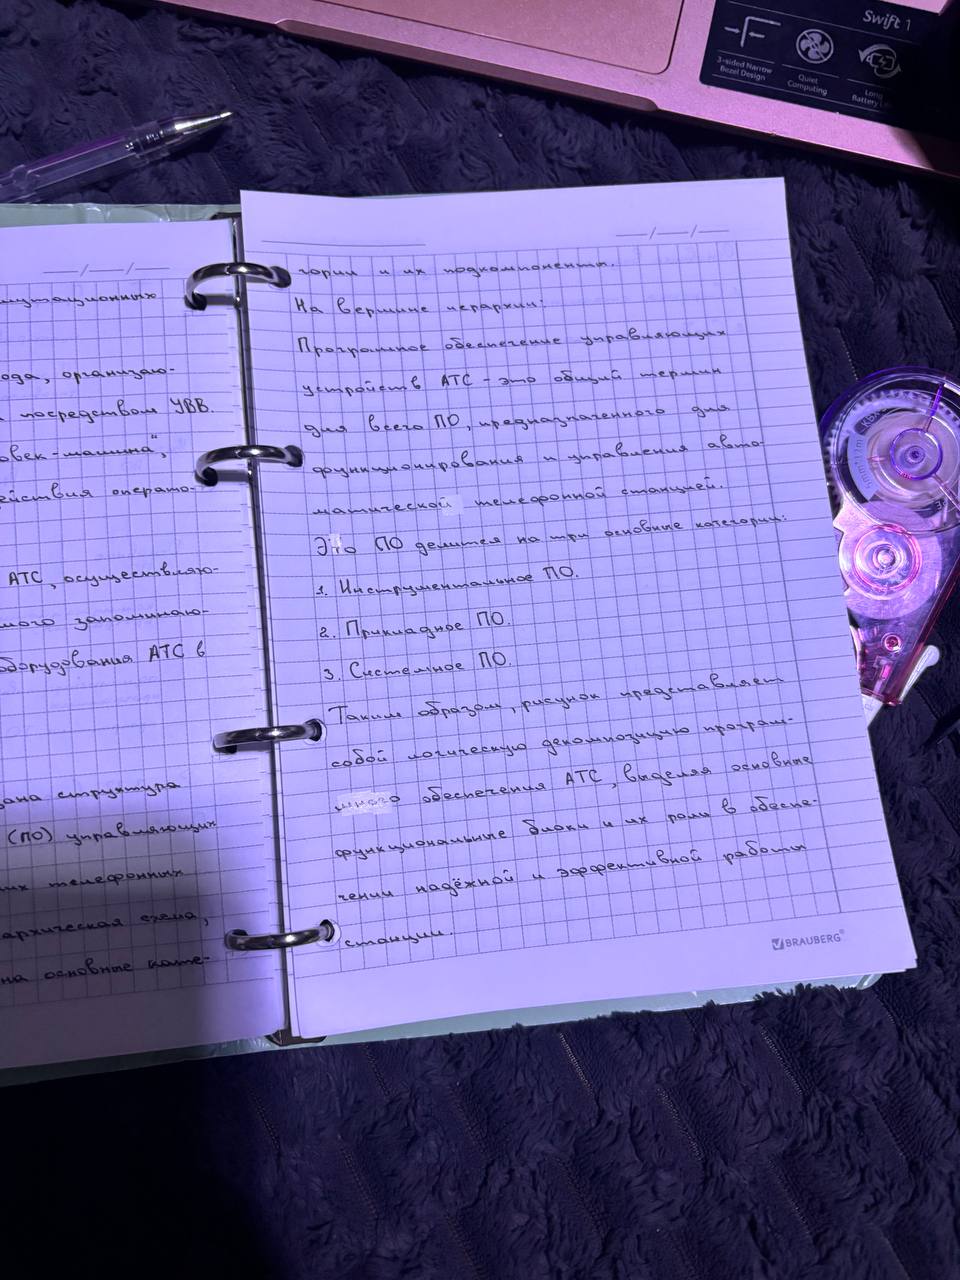 Swift 1
3-sided Narrow
Bezel Design
Quiet
Computing
Long
Battery
__/__/__
мутационных
ода, организаю-
посредством УВВ.
овек-машина",
ействия операто-
АТС, осуществляю-
мого запоминаю-
борудования АТС в
ана структура
(ПО) управляющих
их телефонных
архическая схема,
на основные кате-
__/__/__
гории и их подкомпоненты.
На вершине иерархии:
Программное обеспечение управляющих
устройств АТС - это общий термин
для всего ПО, предназначенного для
функционирования и управления авто-
матической телефонной станцией.
Это ПО делится на три основные категории:
1. Инструментальное ПО.
2. Прикладное ПО.
3. Системное ПО.
Таким образом, рисунок представляет
собой логическую декомпозицию програм-
много обеспечения АТС, выделяя основные
функциональные блоки и их роли в обеспе-
чении надёжной и эффективной работы
станции.
BRAUBERG®
5mm*12m